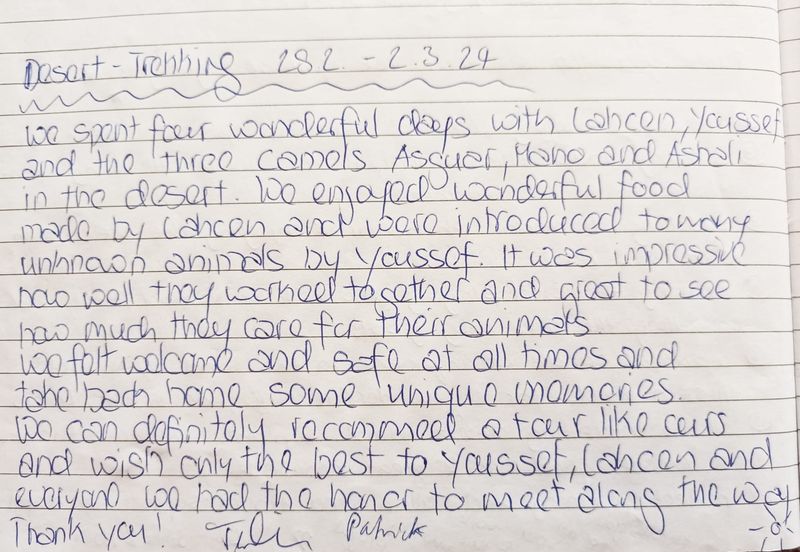 Desert-Trekking 28.2. - 2.3.24
We spent four wonderful days with Lahcen, Youssef
and the three camels Asguar, Mano and Ashali
in the desert. We enjoyed wonderful food
made by Lahcen and were introduced to many
unknown animals by Youssef. It was impressive
how well they worked together and great to see
how much they care for their animals
We felt welcome and safe at all times and
take back home some unique memories.
We can definitely recommed a tour like ours
and wish only the best to Youssef, Lahcen and
everyone we had the honor to meet along the way
Thank you! Patrick